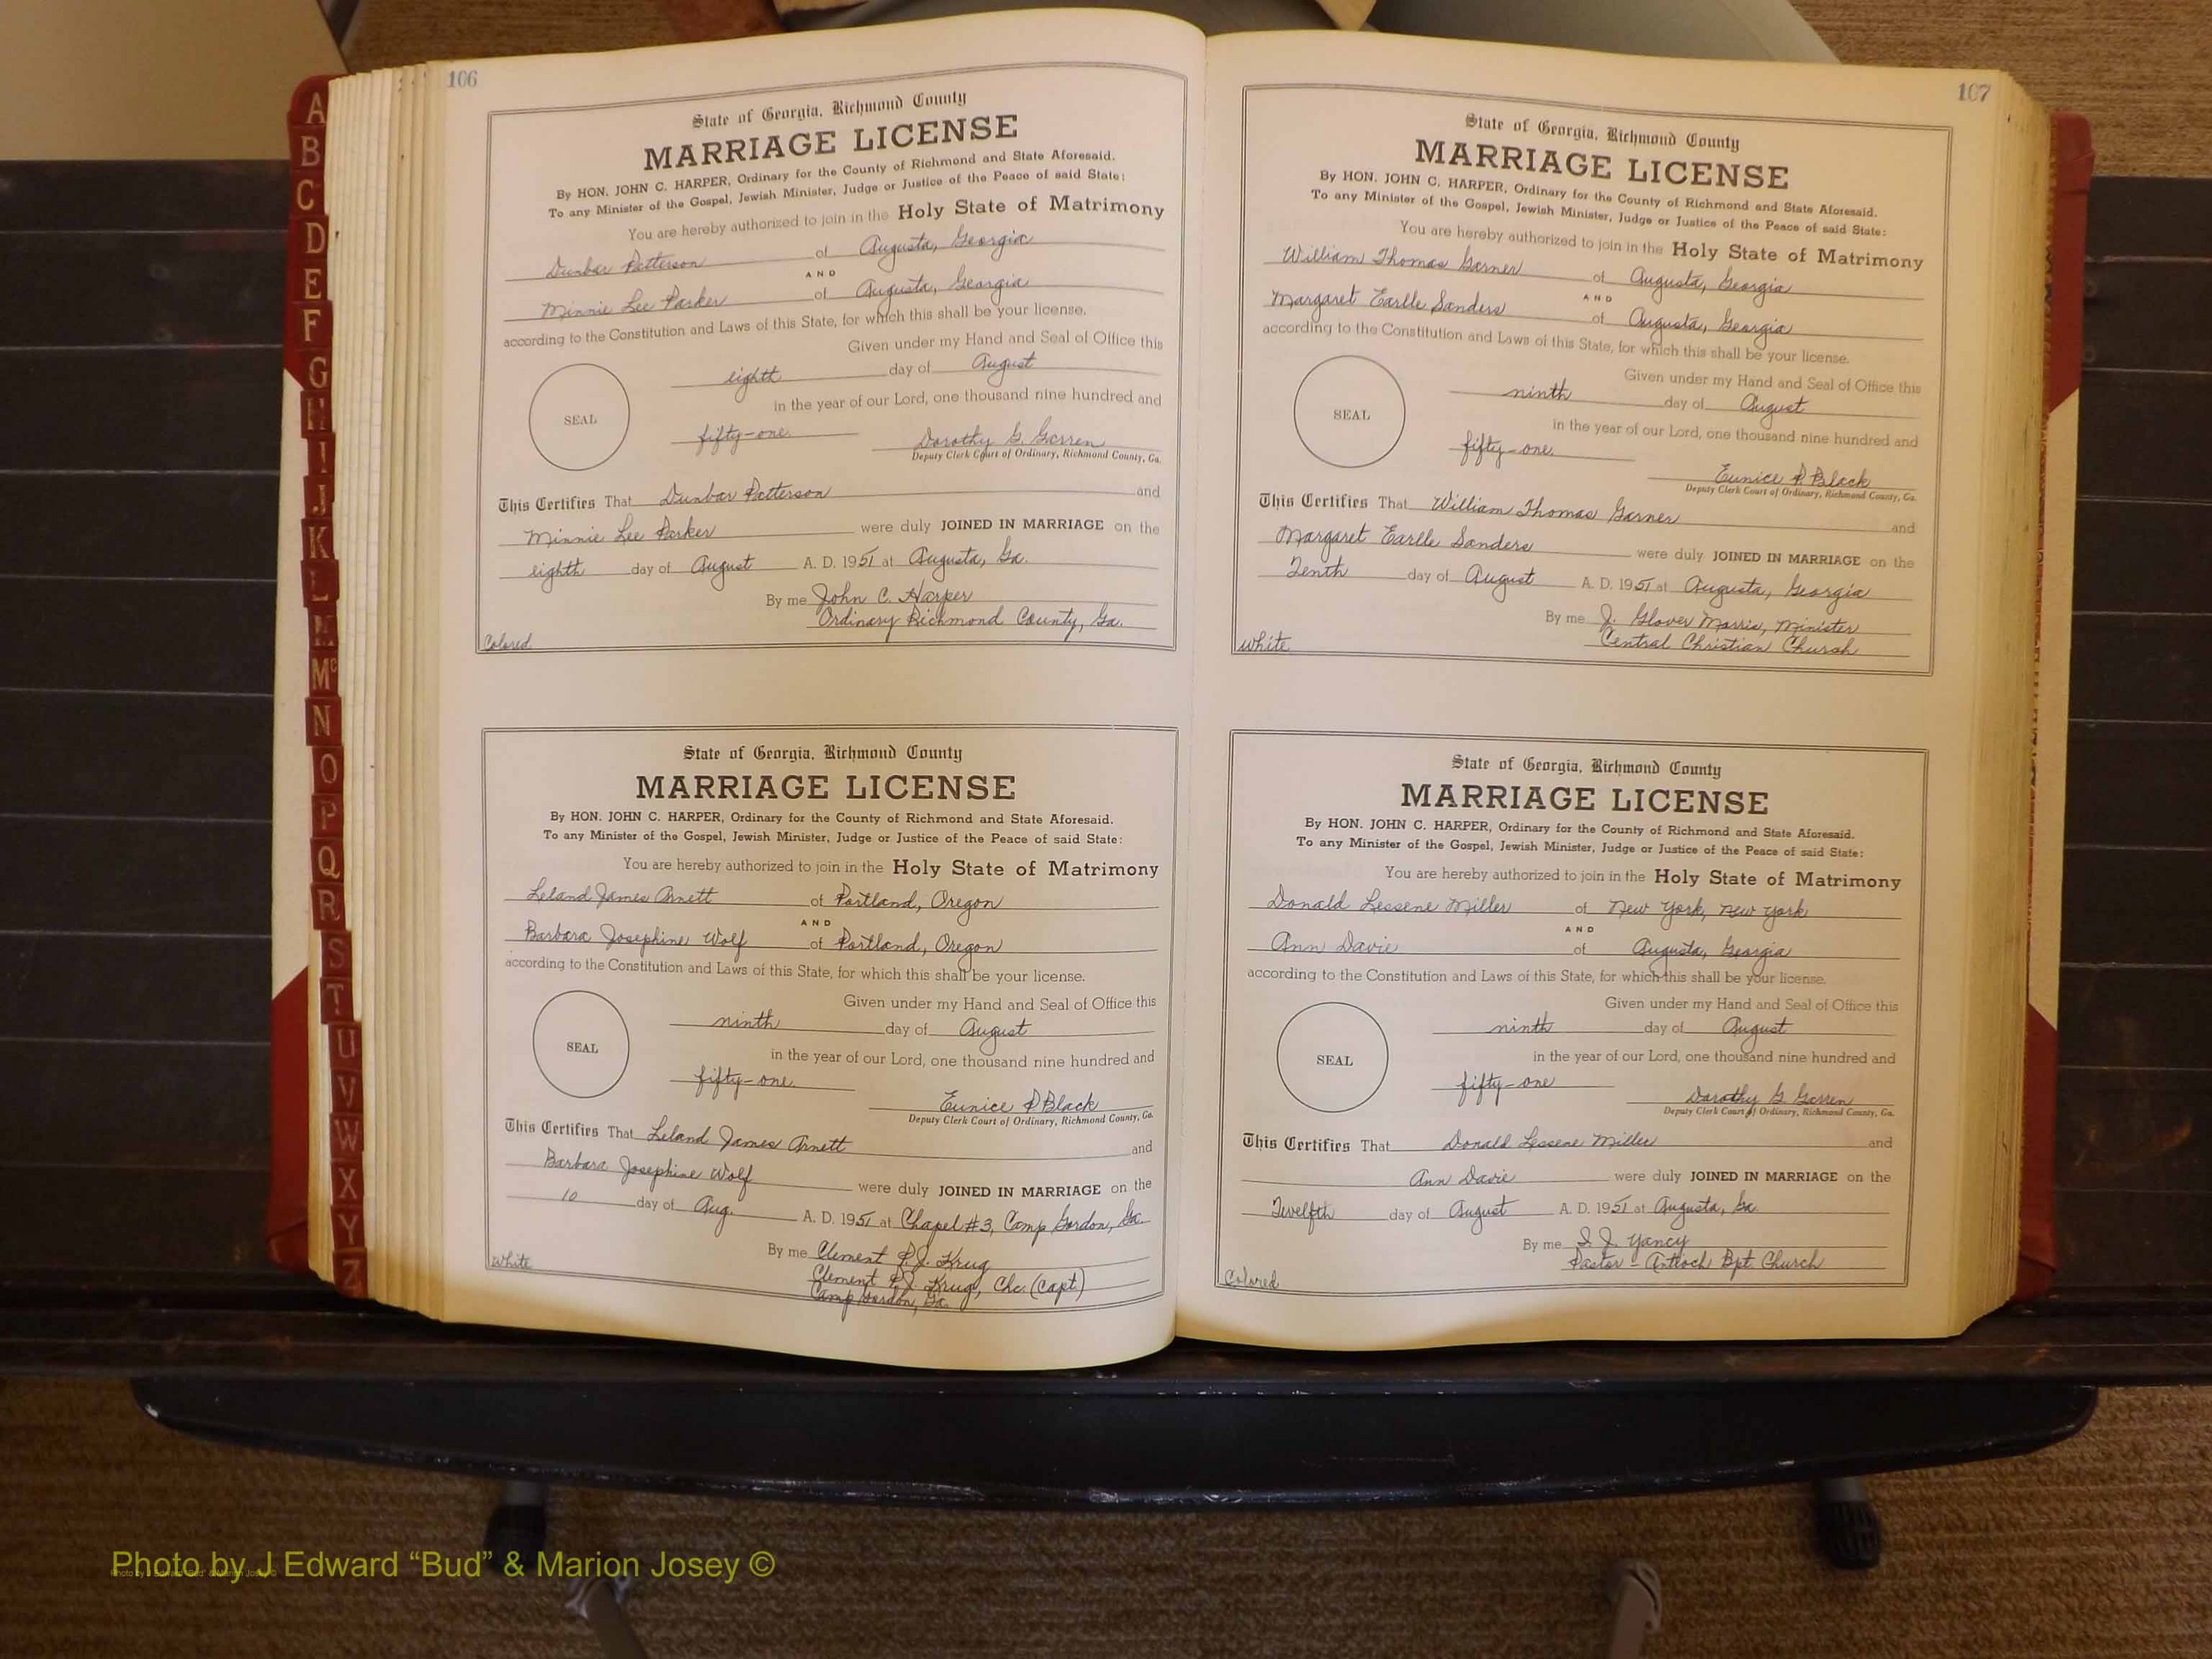 106
State of Georgia, Richmond County
MARRIAGE LICENSE
By HON. JOHN C. HARPER, Ordinary for the County of Richmond and State Aforesaid.
To any Minister of the Gospel, Jewish Minister, Judge or Justice of the Peace of said State:
You are hereby authorized to join in the Holy State of Matrimony
Dunbar Patterson of Augusta, Georgia
AND
Minnie Lee Parker of Augusta, Georgia
according to the Constitution and Laws of this State, for which this shall be your license.
Given under my Hand and Seal of Office this
eighth day of August
in the year of our Lord, one thousand nine hundred and
SEAL
fifty-one. Dorothy G. Garren
Deputy Clerk Court of Ordinary, Richmond County, Ga.
This Certifies That Dunbar Patterson and
Minnie Lee Parker were duly JOINED IN MARRIAGE on the
eighth day of August A. D. 1951 at Augusta, Ga.
By me John C. Harper
Ordinary Richmond County, Ga.
Colored
State of Georgia, Richmond County
MARRIAGE LICENSE
By HON. JOHN C. HARPER, Ordinary for the County of Richmond and State Aforesaid.
To any Minister of the Gospel, Jewish Minister, Judge or Justice of the Peace of said State:
You are hereby authorized to join in the Holy State of Matrimony
Leland James Arnett of Portland, Oregon
AND
Barbara Josephine Wolf of Portland, Oregon
according to the Constitution and Laws of this State, for which this shall be your license.
Given under my Hand and Seal of Office this
ninth day of August
SEAL
in the year of our Lord, one thousand nine hundred and
fifty-one. Eunice P Black
Deputy Clerk Court of Ordinary, Richmond County, Ga.
This Certifies That Leland James Arnett and
Barbara Josephine Wolf were duly JOINED IN MARRIAGE on the
10 day of Aug. A. D. 1951 at Chapel #3, Camp Gordon, Ga.
By me Clement P.J. Krug
Clement P.J. Krug, Chc. (Capt.)
Camp Gordon, Ga.
White
107
State of Georgia, Richmond County
MARRIAGE LICENSE
By HON. JOHN C. HARPER, Ordinary for the County of Richmond and State Aforesaid.
To any Minister of the Gospel, Jewish Minister, Judge or Justice of the Peace of said State:
You are hereby authorized to join in the Holy State of Matrimony
William Thomas Garner of Augusta, Georgia
AND
Margaret Earlle Sanders of Augusta, Georgia
according to the Constitution and Laws of this State, for which this shall be your license.
Given under my Hand and Seal of Office this
ninth day of August
SEAL
in the year of our Lord, one thousand nine hundred and
fifty-one. Eunice P Black
Deputy Clerk Court of Ordinary, Richmond County, Ga.
This Certifies That William Thomas Garner and
Margaret Earlle Sanders were duly JOINED IN MARRIAGE on the
Tenth day of August A. D. 1951 at Augusta, Georgia
By me J. Glover Morris, Minister
Central Christian Church
White
State of Georgia, Richmond County
MARRIAGE LICENSE
By HON. JOHN C. HARPER, Ordinary for the County of Richmond and State Aforesaid.
To any Minister of the Gospel, Jewish Minister, Judge or Justice of the Peace of said State:
You are hereby authorized to join in the Holy State of Matrimony
Donald Lessene Miller of New York, New York
AND
Ann Davie of Augusta, Georgia
according to the Constitution and Laws of this State, for which this shall be your license.
Given under my Hand and Seal of Office this
ninth day of August
SEAL
in the year of our Lord, one thousand nine hundred and
fifty-one Dorothy G Garren
Deputy Clerk Court of Ordinary, Richmond County, Ga.
This Certifies That Donald Lessene Miller and
Ann Davie were duly JOINED IN MARRIAGE on the
Twelfth day of August A. D. 1951 at Augusta, Ga
By me S. J. Yancy
Pastor - Antioch Bpt. Church
Colored
A
B
C
D
E
F
G
H
I
J
K
L
M
Mc
N
O
P
Q
R
S
T
U
V
W
X
Y
Z
Photo by J Edward “Bud” & Marion Josey ©
Photo by J Edward “Bud” & Marion Josey ©